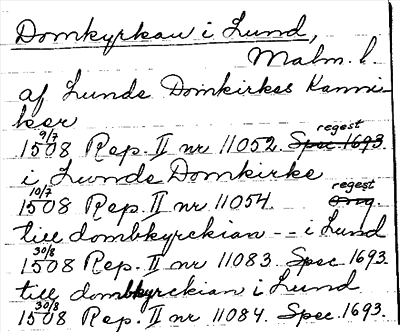 Domkyrkan i Lund,
Malm. l.
af Lunde Domkirkes Kanni-
ker
9/7 regest
1508 Rep. II nr 11052. Spec 1693.
i Lunde Domkirke
10/7 regest
1508 Rep. II nr 11054. Orig.
till dombkyrckian -- i Lund
30/8
1508 Rep. II nr 11083 Spec 1693.
till dombkyrckian i Lund
30/8
1508 Rep. II nr 11084. Spec. 1693.